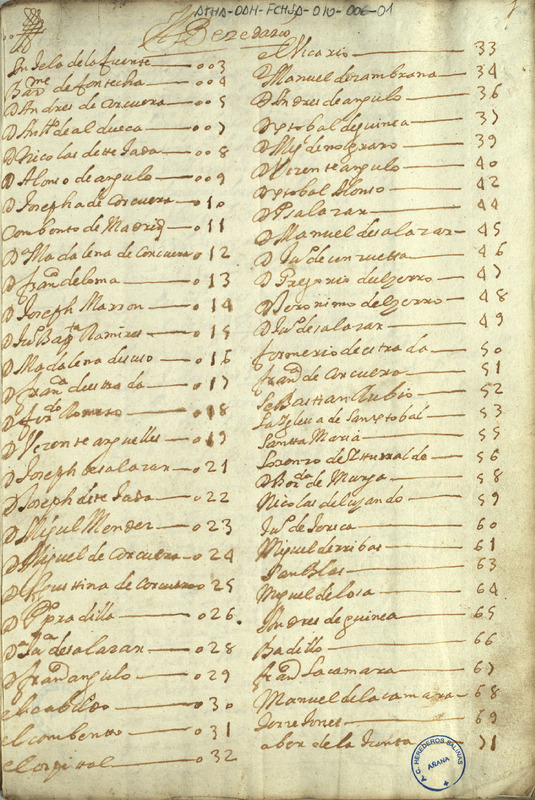 ATHA-DAH-FCHSA-010-006-01
1
Bezedario
de la fuente — 003
Bar.me de fontecha — 004
D Andres de Corcuera — 005
D Antt.o de aldueca — 007
D Nicolas de tejada — 008
D Alonso de angulo — 009
D Joseph de Corcuera — 010
Combento de Madrid — 011
D.a Madalena de Corcuera — 012
D fran.co de loma — 013
D Joseph Marron — 014
D Ju.o Bap.ta Ramires — 015
D Madalena de suso — 016
D fran.ca de estrada — 017
D Romero — 018
D Vizente arguelles — 019
D Joseph de salazar — 021
D Joseph de tejada — 022
D Migul Mendez — 023
D Miguel de Corcuera — 024
D Agustina de Corcuera — 025
D P.o pradilla — 026
D.a Ju.a de salazar — 028
D fran.co angulo — 029
el cabildo — 030
el combento — 031
el ospital — 032
el Vicario — 33
Manuel de zambrana — 34
D Andres de angulo — 36
D xptobal de guinea — 37
D de nograro — 39
D Vizente angulo — 40
D xptobal Alonso — 42
D P salazar — 44
D Manuel de salazar — 45
D Ju.o de — 46
D Gregorio del zerro — 47
D Geronimo del zerro — 48
D Ju.o de salazar — 49
formerio de estrada — 50
fran.co de Corcuera — 51
Sebastian Rubio — 52
la Iglesia de San xptobal — 53
Santta Maria — 55
Lorenzo de Itturralde — 56
D de Murga — 58
Nicolas de luyando — 59
Ju.o de — 60
Miguel de rribas — 61
Juan Blas — 63
Miguel de losa — 64
Andres de guinea — 65
Badillo — 66
fran.co Lacamara — 67
Manuel de la camara — 68
Torre — 69
de la Junta — 71
A. G. HEREDEROS SALINAS
AÑANA